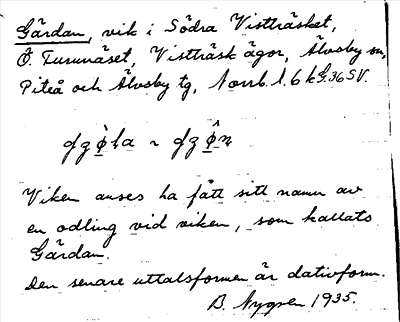 Gärdan, vik i Södra Vistträsket,
Ö. Turunäset, Vistträsk ägor, Älvsby sn,
Piteå och Älvsby tg, Norrb. l. 6 k G.36 SV.
Viken anses ha fått sitt namn av
en odling vid viken, som kallats
Gärdan.
Den senare uttalsformen är dativform.
B. Nygren 1935.